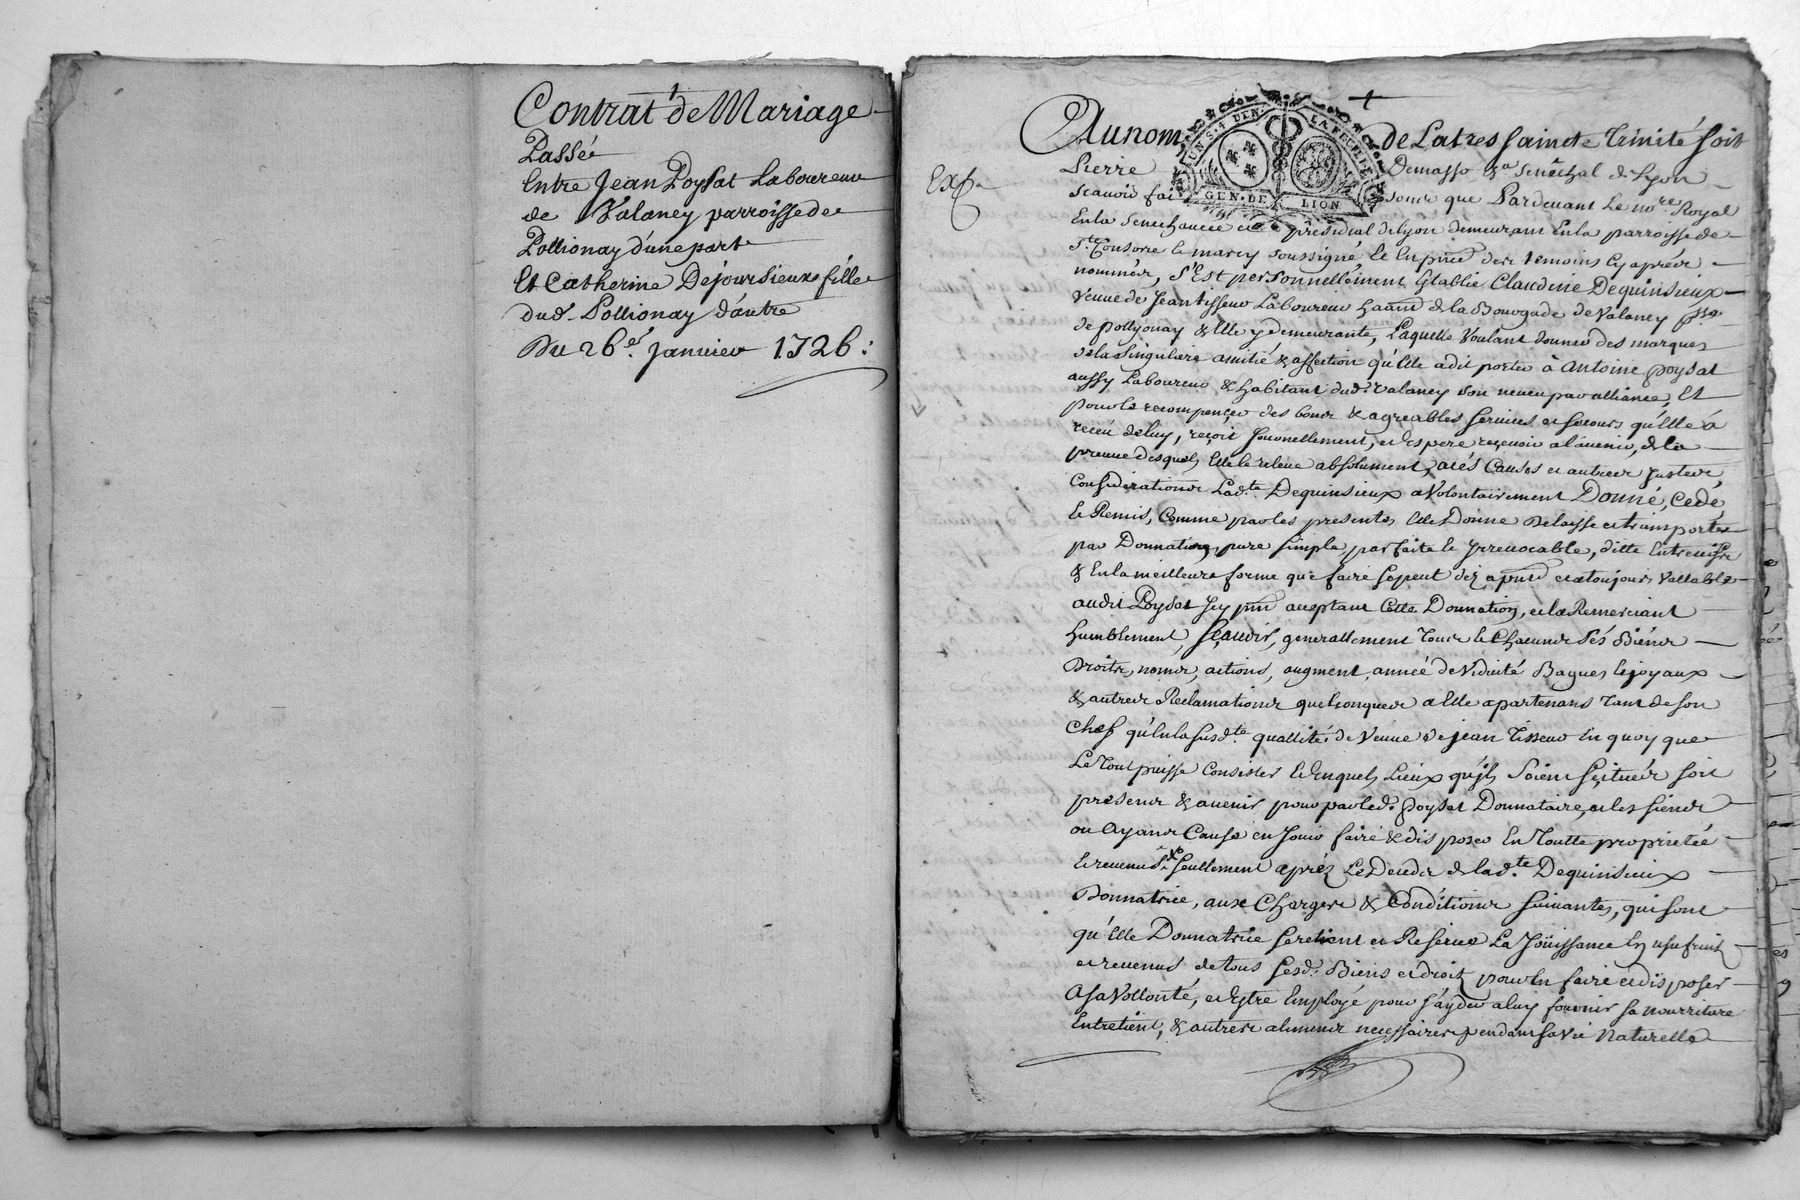 Contrat de Mariage
Passé
Entre Jean Poysat Laboureur
de Valaney parroisse de
Pollionay d'une part
Et Catherine Dejoursieux fille
dud. Pollionay d'autre
Du 26e. Janvier 1726:
Au nom de La tres saincte Trinité soit
Exp.
Pierre Demasso Senechal de Lyon
scavoir fai sons que Pardevant Le nore. Royal
En la Senechaucée et presidial de Lyon demeurant En la parroisse de
Ste. Consorce le marcy soussigné Et En pnce des temoins Cy apres
nommés, s'Est personnellement Etablie Claudine Dequinsieux
veuve de Jean tisseur Laboureur de la Bourgade de Valaney
de pollyonay & Elle y demeurante, Laquelle Voulant donner des marques
de la singuliere amitié & affection qu'Elle a dit porter à Antoine poysat
aussy Laboureur & habitant dud. Valaney son neveu par alliance, Et
pour le recompenser des bons & agreables services et secours qu'Elle à
receu de luy, reçoit journellement, et Espere recevoir a l'avenir, de la
preuve desquels Elle le releve absolument, a cés Causes et autres justes
Considerations Ladte. Dequinsieux a Volontairement Donné, Cedé,
Et Remis, Comme par les presentes Elle Donne Delaisse et transporte
par Donnation, pure simple, parfaite Et Irrevocable, ditte Entre vifs
& En la meilleure forme que faire se peut dez a pnt et a toujours Vallable
audit Poysat Icy pnt acceptant Cette Donnation, et la Remerciant
humblement, sçavoir, generallement tous Et Chacuns sés Biéns
Droits, noms, actions, augment, année de Viduité Bagues Et joyaux
& autres Reclamations quelconques a Elle apartenans tant de son
Chef qu'En la susdte. quallité de Veuve de jean Tisseur En quoy que
Le tout puisse Consister Et En quels Lieux qu'ils soient scituées soit
presens & avenir pour par led. Poysat Donnataire, et les siens
ou Ayans Cause en Jouir faire & disposer En toutte proprietée
Et revenus seullement aprés Le Decéds de ladte. Dequinsieux
Donnatrice, aux Charges & Conditions suivantes, qui sont
qu'Elle Donnatrice se retient et Reserve La Joüissance En usufruit
et revenus de tous sesd. Biens et droits pour En faire et disposer
A sa Vollonté, et Estre Employé pour s'ayder a luy fournir sa nourriture
Entretient, & autres alimens necessaires pendant sa vie Naturelle